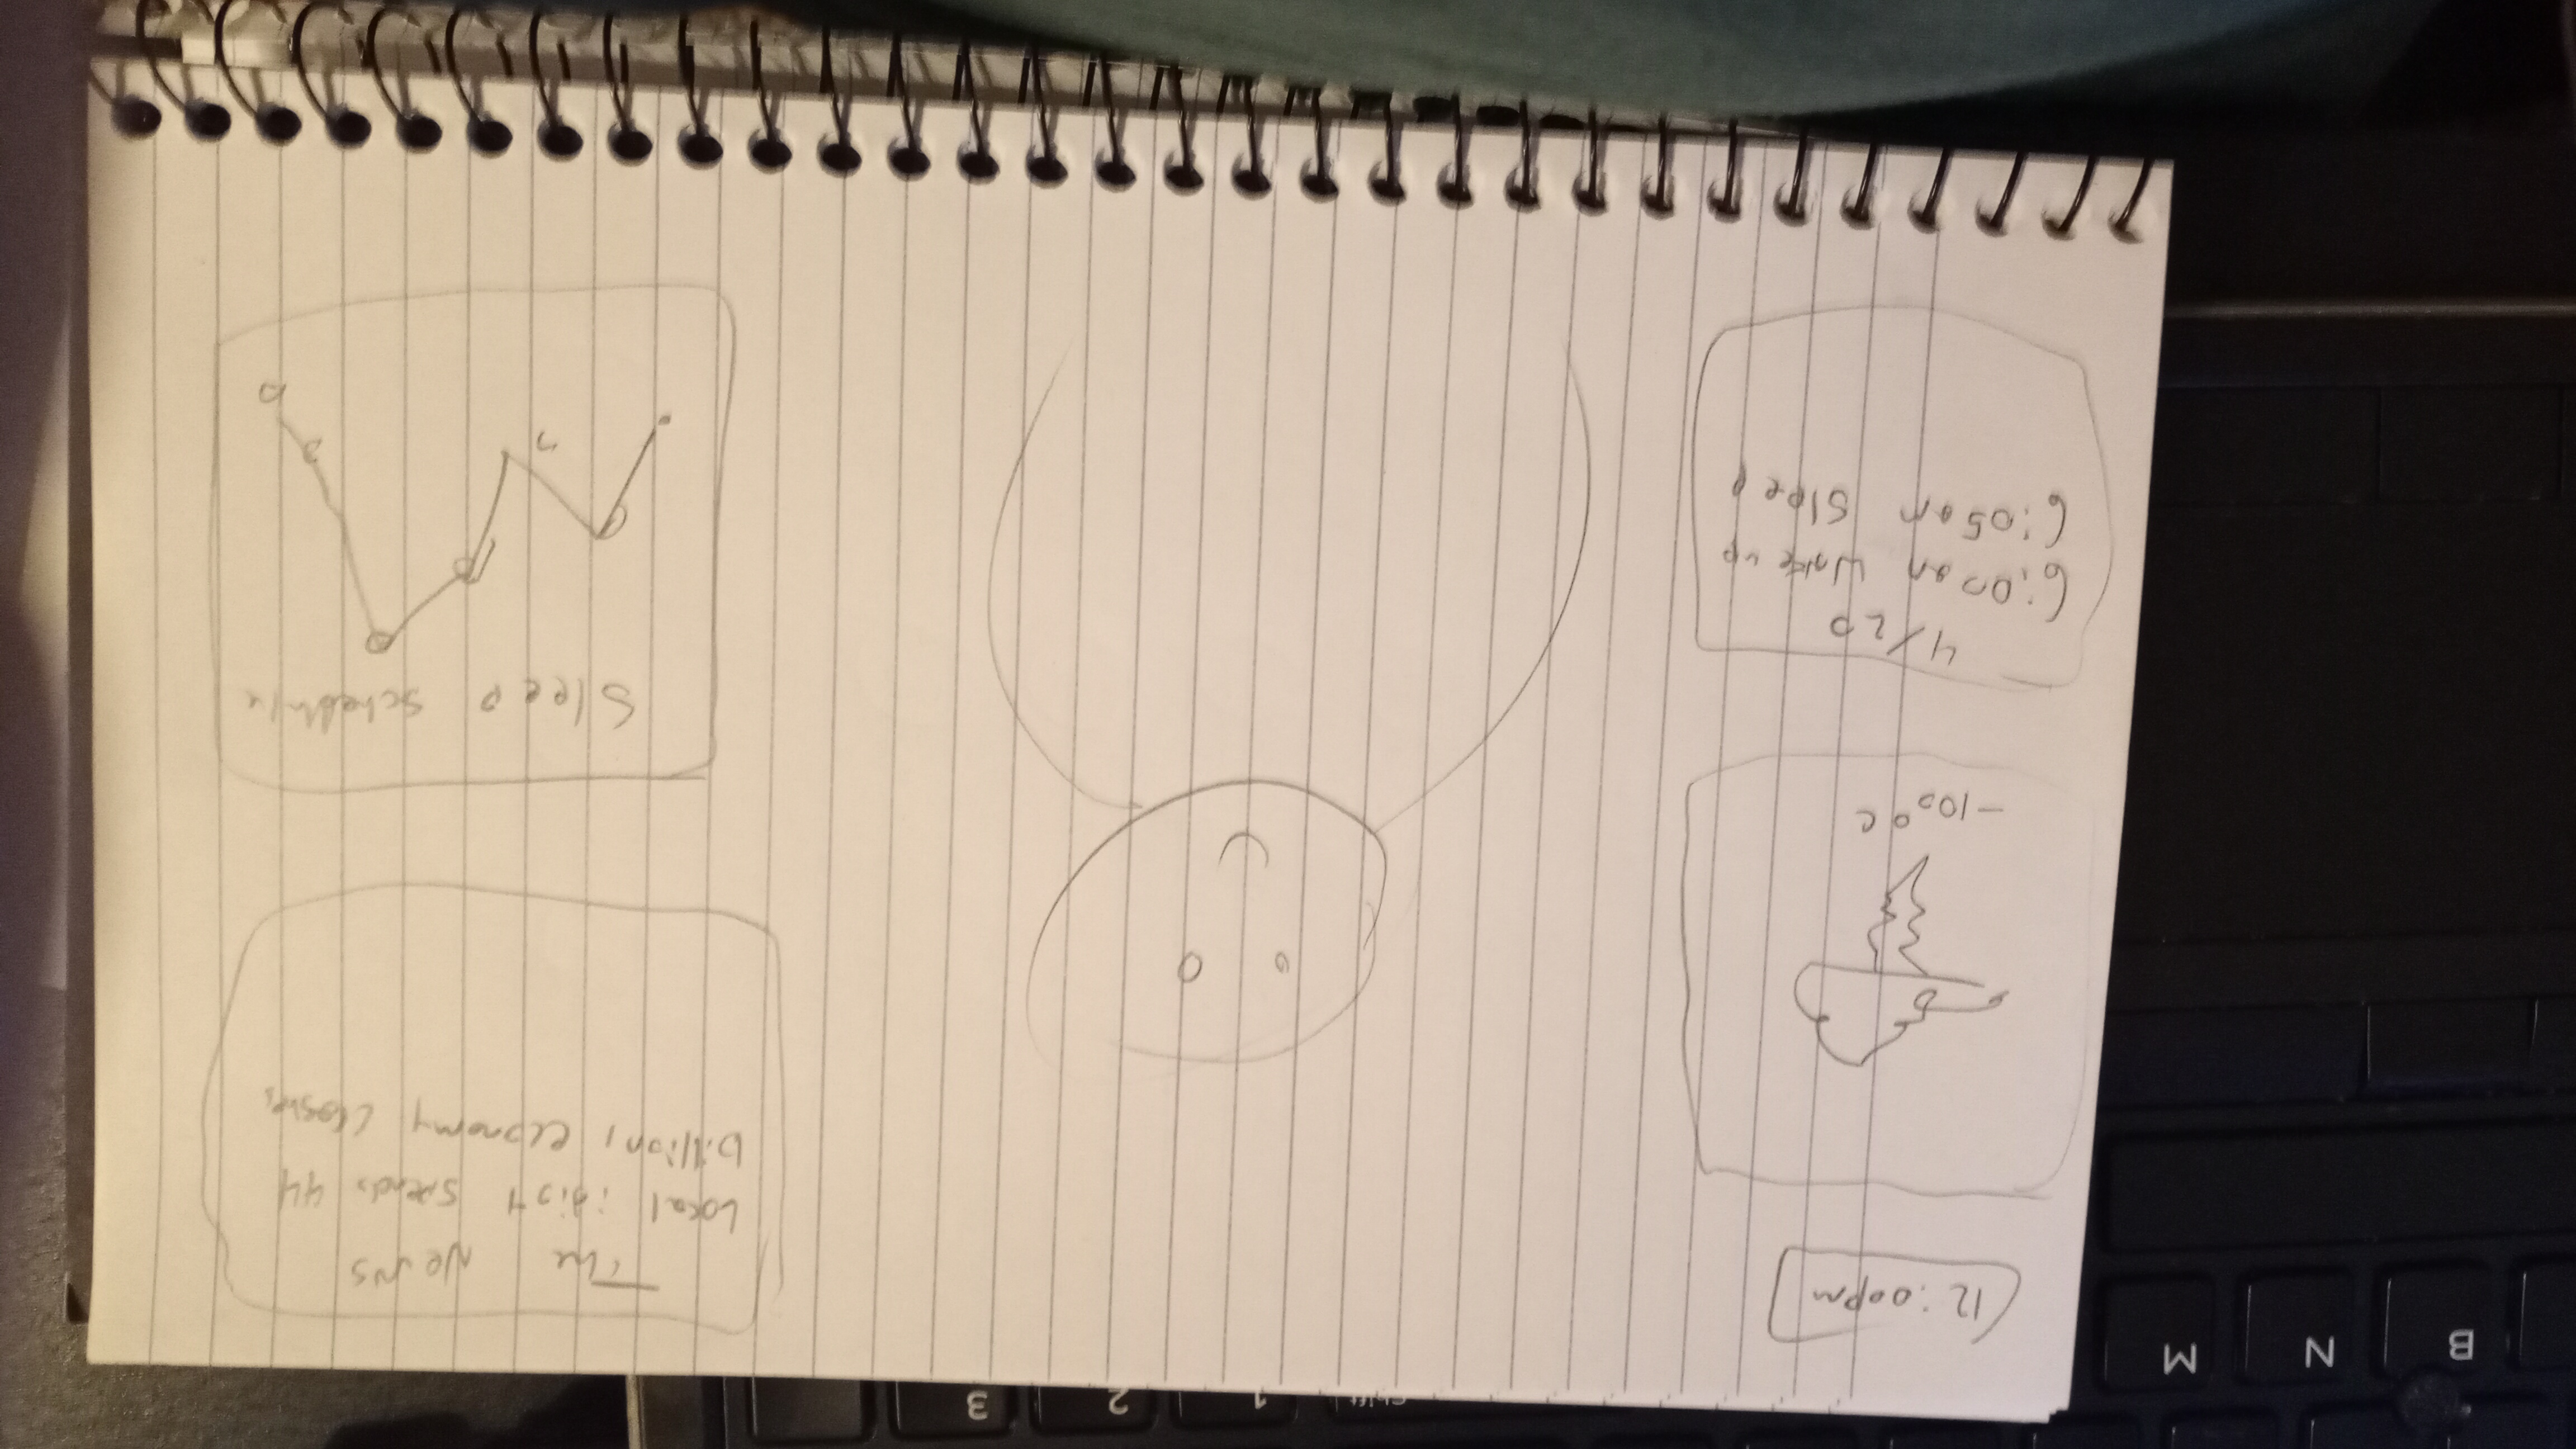 B N M
Shift 1 2 3
12:00pm
-100°C
4/20
6:00am Wake up
6:05am Sleep
The News
Local idiot spends 44
billion, economy crashes
Sleep schedule